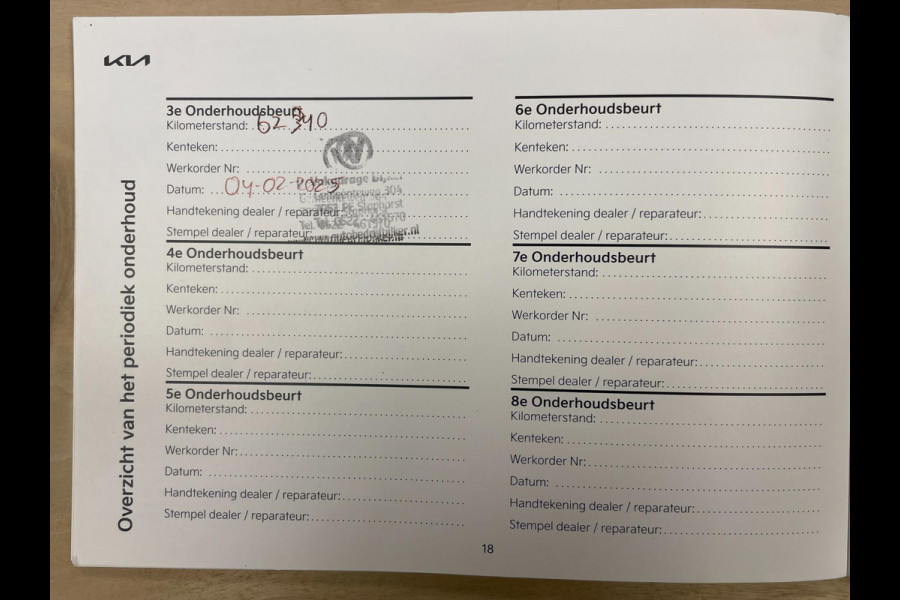 KIA
Overzicht van het periodiek onderhoud
3e Onderhoudsbeurt
Kilometerstand: 62
Kenteken:
Werkorder Nr:
Datum: 04-02-2025
Handtekening dealer / reparateur:
Stempel dealer / reparateur:
Gemeenteweg 304
Staphorst
Tel. 0522 - 461970
4e Onderhoudsbeurt
Kilometerstand:
Kenteken:
Werkorder Nr:
Datum:
Handtekening dealer / reparateur:
Stempel dealer / reparateur:
5e Onderhoudsbeurt
Kilometerstand:
Kenteken:
Werkorder Nr:
Datum:
Handtekening dealer / reparateur:
Stempel dealer / reparateur:
6e Onderhoudsbeurt
Kilometerstand:
Kenteken:
Werkorder Nr:
Datum:
Handtekening dealer / reparateur:
Stempel dealer / reparateur:
7e Onderhoudsbeurt
Kilometerstand:
Kenteken:
Werkorder Nr:
Datum:
Handtekening dealer / reparateur:
Stempel dealer / reparateur:
8e Onderhoudsbeurt
Kilometerstand:
Kenteken:
Werkorder Nr:
Datum:
Handtekening dealer / reparateur:
Stempel dealer / reparateur:
18